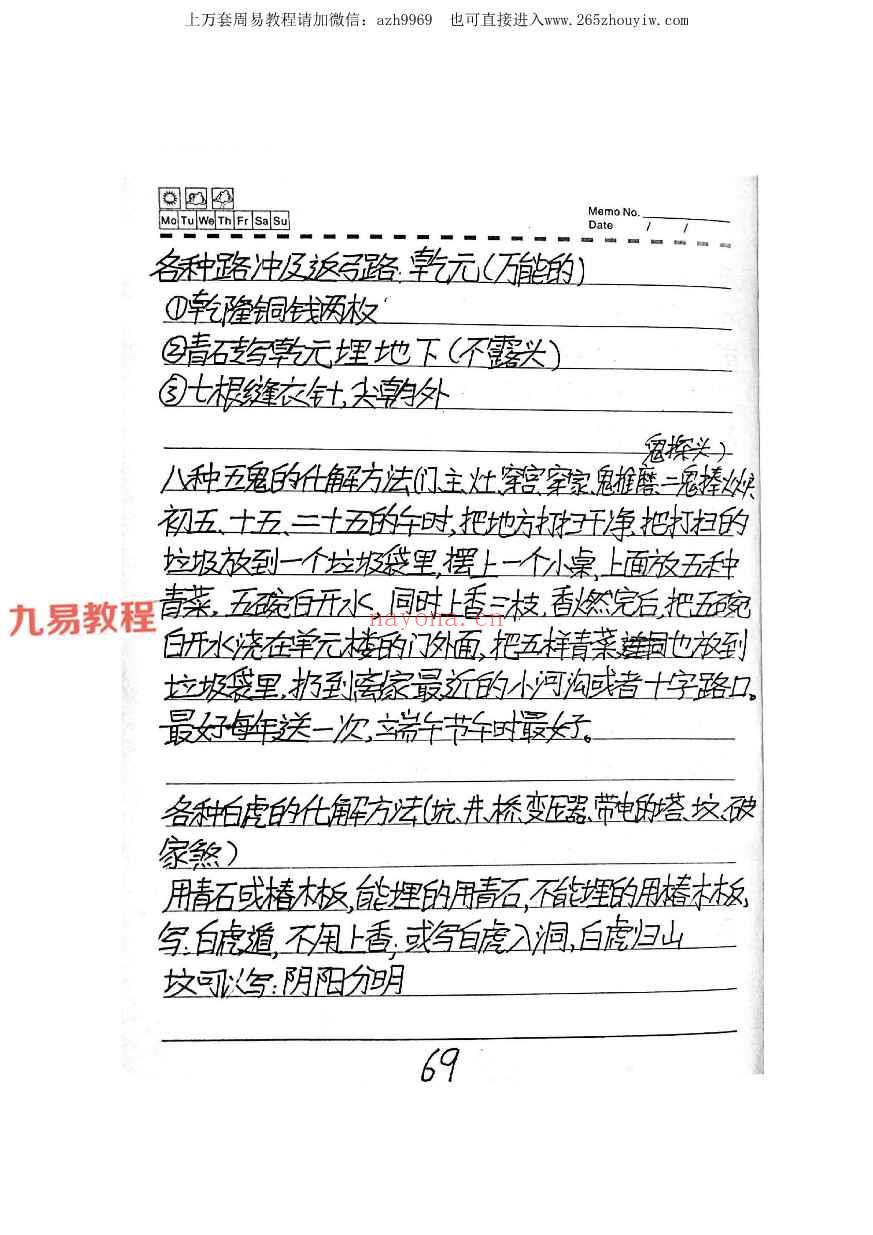 上万套周易教程请加微信：azh9969 也可直接进入www.265zhouyiw.com
Mo Tu We Th Fr Sa Su
Memo No.
Date / /
各种路冲及返弓路：乾元（万能的）
①乾隆铜钱两枚
②青石写乾元埋地下（不露头）
③七根缝衣针，尖朝外
鬼探头）
八种五鬼的化解方法（门、主、灶、穿宫、穿家、鬼推磨、二鬼捧火
初五、十五、二十五的午时，把地方打扫干净，把打扫的
垃圾放到一个垃圾袋里，摆上一个小桌，上面放五种
青菜，五碗白开水，同时上香三枝，香燃完后，把五碗
白开水浇在单元楼的门外面，把五样青菜也放到
垃圾袋里，扔到离家最近的小河沟或者十字路口。
最好每年送一次，端午节午时最好。
九易教程
nayona.cn
各种白虎的化解方法（坑、井、桥、变压器、带电的塔、坟、破
家煞）
用青石或椿木板，能埋的用青石，不能埋的用椿木板，
写：白虎遁，不用上香；或写白虎入洞，白虎归山
坟可以写：阴阳分明
69